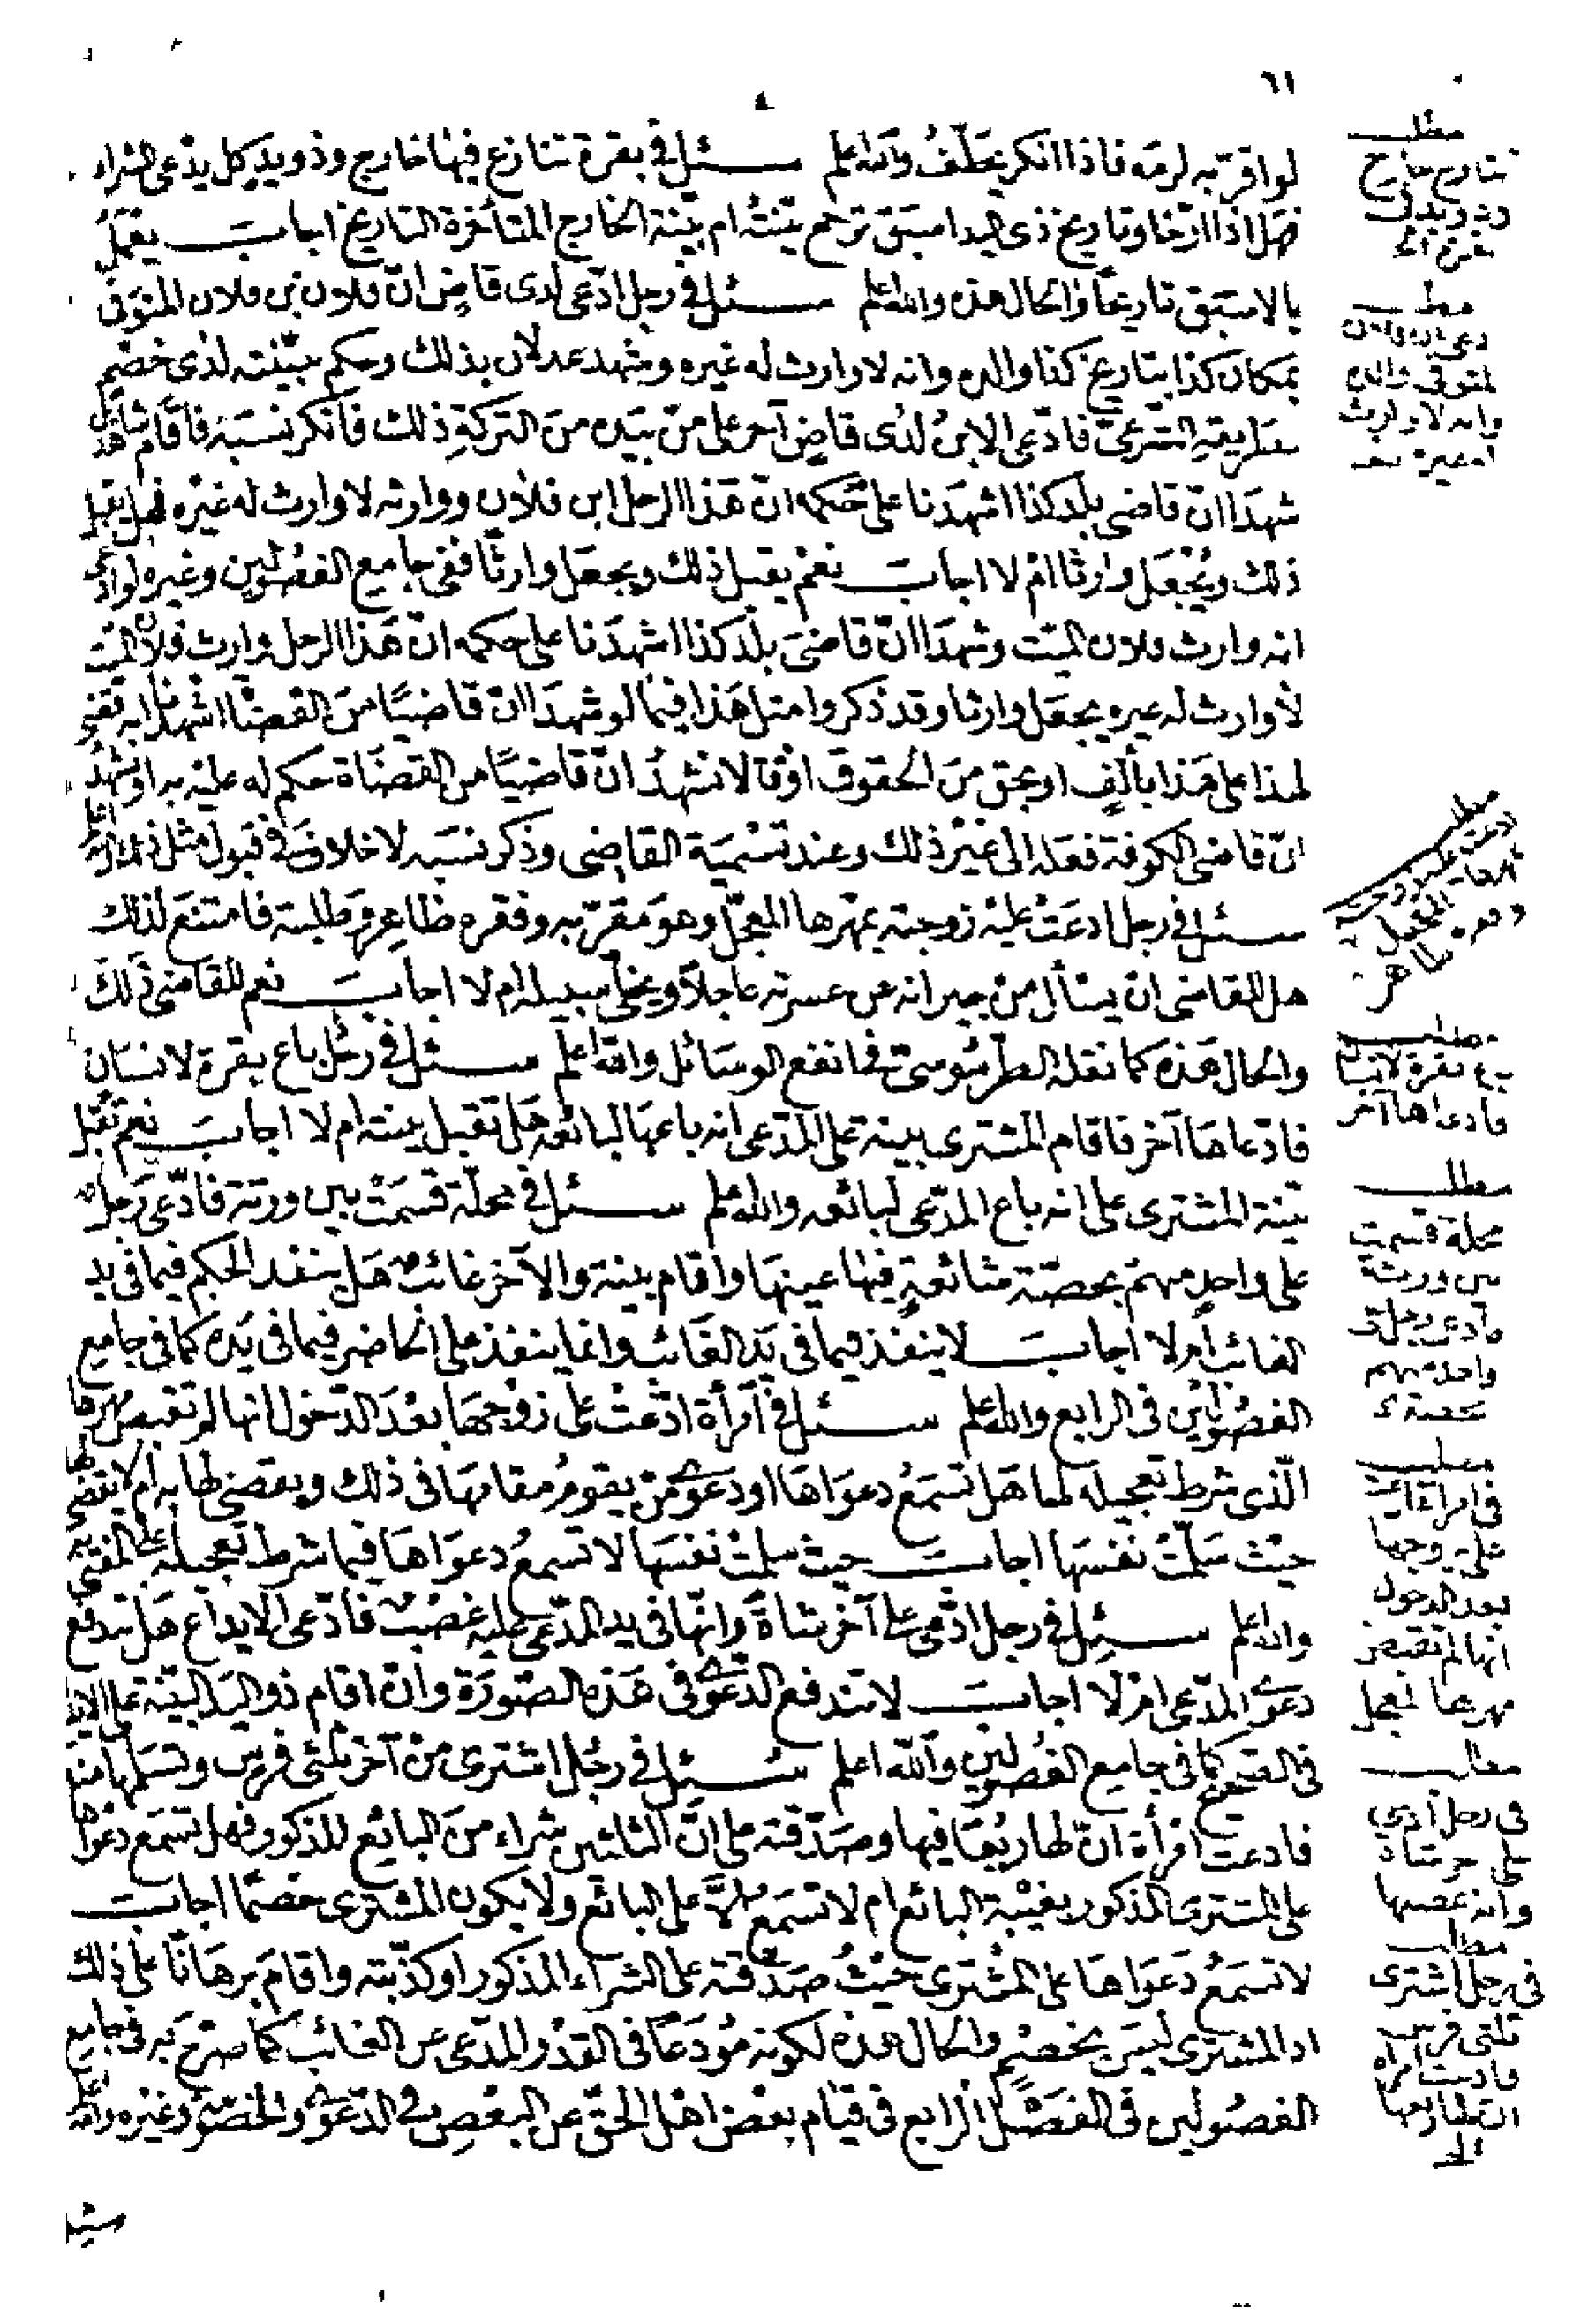 ٦١
لو اقر به لزمه فاذا انكر يحلف والله اعلم سئل في بقرة تنازع فيها خارج وذو يد كل يدعى الشراء
فهل اذا ارخا وتاريخ ذى اليد اسبق ترجح بينته ام بينة الخارج المتأخرة التاريخ اجاب يعمل
بالاسبق تاريخا والحال هذه والله اعلم سئل في رجل ادعى لدى قاض ان فلان بن فلان المتوفى
بمكان كذا بتاريخ كذا والده وانه لا وارث له غيره وشهد عدلان بذلك وحكم ببينته لدى خصم
بطريقه الشرعي فادعى الابن لدى قاض آخر على من بيده من التركة ذلك فانكر نسبه فاقام شاهدين
شهدا ان قاضي بلد كذا اشهدنا على حكمه ان هذا الرجل ابن فلان ووارثه لا وارث له غيره فهل يقبل
ذلك ويجعل وارثا ام لا اجاب نعم يقبل ذلك ويجعل وارثا ففي جامع الفصولين وغيره لو ادعى
انه وارث فلان الميت وشهدا ان قاضي بلد كذا اشهدنا على حكمه ان هذا الرجل وارث فلان الميت
لا وارث له غيره يجعل وارثا وقد ذكروا مثل هذا فيما لو شهدا ان قاضيا من القضاة اشهدنا انه قضى
لهذا على هذا بألف او بحق من الحقوق او قالا نشهد ان قاضيا من القضاة حكم له عليه به او نشهد
ان قاضي الكوفة فعله الى غير ذلك وعند تسمية القاضي وذكر نسبه لا خلاف في قبول مثل ذلك والله اعلم
سئل في رجل ادعت عليه زوجته بمهرها المعجل وهو مقر به وفقره ظاهر وطلبته فامتنع لذلك
هل للقاضي ان يسأل من جيرانه عن عسرته عاجلا ويخلي سبيله ام لا اجاب نعم للقاضي ذلك
والحال هذه كما نقله الطرسوسي في انفع الوسائل والله اعلم سئل في رجل باع بقرة لانسان
فادعاها آخر فاقام المشتري بينة على المدعى انه باعها لبائعه هل تقبل بينته ام لا اجاب نعم تقبل
بينة المشترى على انه باع المدعى لبائعه والله اعلم سئل في محلة قسمت بين ورثة فادعى رجل
على واحد منهم بحصة شائعة فيها عينها واقام بينة والآخر غائب هل ينفذ الحكم فيما فى يد
الغائب ام لا اجاب لا ينفذ فيما فى يد الغائب وانما ينفذ على الحاضر فيما فى يده كما فى جامع
الفصولين فى الرابع والله اعلم سئل في امرأة ادعت على زوجها بعد الدخول انها لم تقبض مهرها
الذى شرط تعجيله لها هل تسمع دعواها او دعوى من يقوم مقامها فى ذلك ويقضى لها به ام لا يقضى لها به
حيث سلمت نفسها اجاب حيث سلمت نفسها لا تسمع دعواها فيما شرط تعجيله على المفتى به
والله اعلم سئل في رجل ادعى على آخر شاة وانها فى يد المدعى عليه غصب فادعى الايداع هل تندفع
دعوى المدعى ام لا اجاب لا تندفع الدعوى فى هذه الصورة وان اقام ذو اليد البينة على الايداع
فى الصحيح كما فى جامع الفصولين والله اعلم سئل في رجل اشترى من آخر ثلثى فرس وتسلمها منه
فادعت امرأة ان لها ربعا فيها وصدقته على ان الثلثين شراء من البائع المذكور فهل تسمع دعواها
على المشترى المذكور بغيبة البائع ام لا تسمع الا على البائع ولا يكون المشترى خصما اجاب
لا تسمع دعواها على المشترى حيث صدقته على الشراء المذكور او كذبته واقام برهانا على ذلك
اذ المشترى ليس بخصم والحال هذه لكونه مودعا فى القدر المدعى عن الغائب كما صرح به فى جامع
الفصولين فى الفصل الرابع فى قيام بعض اهل الحق عن البعض فى الدعوى والخصومة وغيره والله اعلم
سئل
مطلب
تنازع خارج
وذو يد في
بقرة الخ
مطلب
المتوفى والده
وانه لا وارث
له غيره
مطلب
مطلب
باع بقرة لانسان
فادعاها آخر
مطلب
محلة قسمت
بين ورثة
فادعى رجل على
واحد منهم
بحصة
مطلب
فى امرأة ادعت
على زوجها
بعد الدخول
انها لم تقبض
مهرها المعجل
مطلب
فى رجل ادعى
على آخر شاة
وانه غصبها
مطلب
فى رجل اشترى
ثلثى فرس
فادعت امرأة
ان لها ربعها
الخ